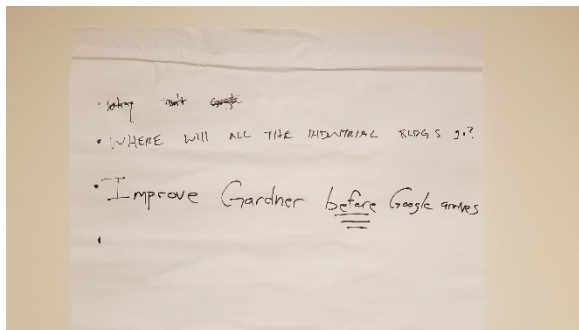 • WHERE WILL ALL THE INDUSTRIAL BLDGS go?
• Improve Gardner before Google arrives